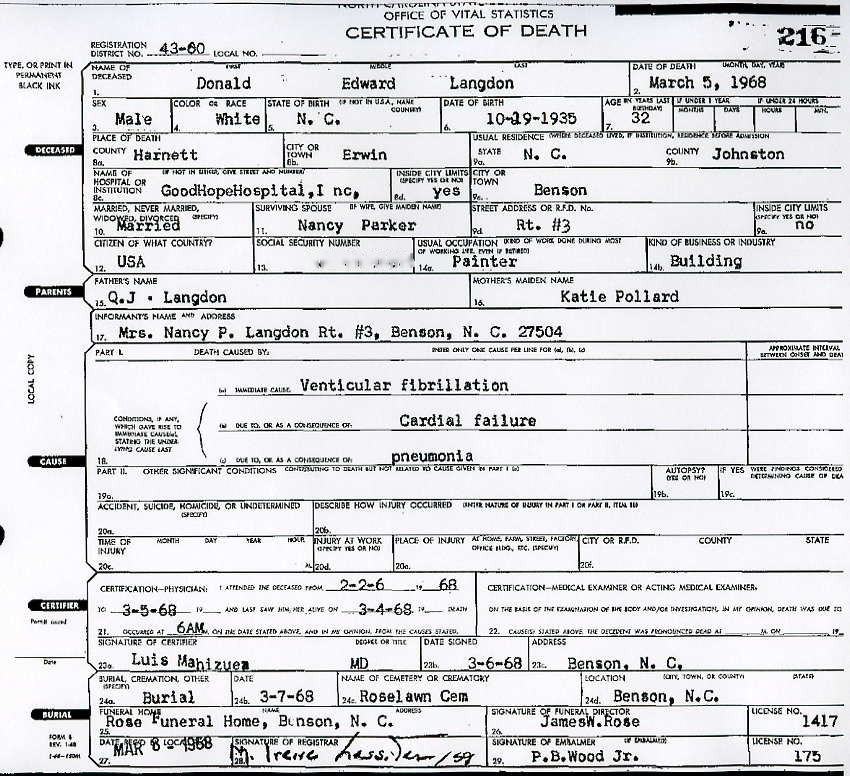 NORTH CAROLINA STATE
OFFICE OF VITAL STATISTICS
CERTIFICATE OF DEATH
216
REGISTRATION DISTRICT NO. 43-60 LOCAL NO.
TYPE, OR PRINT IN PERMANENT BLACK INK
1. NAME OF DECEASED FIRST MIDDLE LAST Donald Edward Langdon
2. DATE OF DEATH (MONTH, DAY, YEAR) March 5, 1968
3. SEX Male
4. COLOR OR RACE White
5. STATE OF BIRTH (IF NOT IN U.S.A., NAME COUNTRY) N. C.
6. DATE OF BIRTH 10-19-1935
7. AGE (IN YEARS LAST BIRTHDAY) 32 IF UNDER 1 YEAR MONTHS DAYS IF UNDER 24 HOURS HOURS MIN.
DECEASED
PLACE OF DEATH
8a. COUNTY Harnett
8b. CITY OR TOWN Erwin
USUAL RESIDENCE (WHERE DECEASED LIVED, IF INSTITUTION, RESIDENCE BEFORE ADMISSION
9a. STATE N. C.
9b. COUNTY Johnston
8c. NAME OF HOSPITAL OR INSTITUTION (IF NOT IN EITHER, GIVE STREET AND NUMBER) GoodHopeHospital,I nc,
8d. INSIDE CITY LIMITS (SPECIFY YES OR NO) yes
9c. CITY OR TOWN Benson
10. MARRIED, NEVER MARRIED, WIDOWED, DIVORCED (SPECIFY) Married
11. SURVIVING SPOUSE (IF WIFE, GIVE MAIDEN NAME) Nancy Parker
9d. STREET ADDRESS OR R.F.D. No. Rt. #3
9e. INSIDE CITY LIMITS (SPECIFY YES OR NO) no
12. CITIZEN OF WHAT COUNTRY? USA
13. SOCIAL SECURITY NUMBER
14a. USUAL OCCUPATION (KIND OF WORK DONE DURING MOST OF WORKING LIFE, EVEN IF RETIRED) Painter
14b. KIND OF BUSINESS OR INDUSTRY Building
PARENTS
15. FATHER'S NAME Q.J . Langdon
16. MOTHER'S MAIDEN NAME Katie Pollard
17. INFORMANT'S NAME AND ADDRESS Mrs. Nancy P. Langdon Rt. #3, Benson, N. C. 27504
LOCAL COPY
PART I. DEATH CAUSED BY: ENTER ONLY ONE CAUSE PER LINE FOR (a), (b), (c)
APPROXIMATE INTERVAL BETWEEN ONSET AND DEA
(a) IMMEDIATE CAUSE Venticular fibrillation
CONDITIONS, IF ANY, WHICH GAVE RISE TO IMMEDIATE CAUSE(a), STATING THE UNDER- LYING CAUSE LAST
(b) DUE TO, OR AS A CONSEQUENCE OF: Cardial failure
18. (c) DUE TO, OR AS A CONSEQUENCE OF: pneumonia
CAUSE
PART II. OTHER SIGNIFICANT CONDITIONS CONTRIBUTING TO DEATH BUT NOT RELATED TO CAUSE GIVEN IN PART I (a)
19a.
19b. AUTOPSY? (YES OR NO)
19c. IF YES WERE FINDINGS CONSIDERED DETERMINING CAUSE OF DEA
20a. ACCIDENT, SUICIDE, HOMICIDE, OR UNDETERMINED (SPECIFY)
20b. DESCRIBE HOW INJURY OCCURRED (ENTER NATURE OF INJURY IN PART I OR PART II, ITEM 18)
20c. TIME OF INJURY MONTH DAY YEAR HOUR M.
20d. INJURY AT WORK (SPECIFY YES OR NO)
20e. PLACE OF INJURY AT HOME, FARM, STREET, FACTORY, OFFICE BLDG., ETC. (SPECIFY)
20f. CITY OR R.F.D. COUNTY STATE
CERTIFICATION—PHYSICIAN: I ATTENDED THE DECEASED FROM 2-2-6 19 68
TO 3-5-68 19 AND LAST SAW HIM/HER ALIVE ON 3-4-68 19 DEATH
21. OCCURRED AT 6AM M. ON THE DATE STATED ABOVE, AND IN MY OPINION, FROM THE CAUSES STATED.
CERTIFICATION—MEDICAL EXAMINER OR ACTING MEDICAL EXAMINER:
ON THE BASIS OF THE EXAMINATION OF THE BODY AND/OR INVESTIGATION, IN MY OPINION, DEATH WAS DUE TO
22. CAUSE(S) STATED ABOVE. THE DECEDENT WAS PRONOUNCED DEAD AT M. ON 19
CERTIFIER
Permit issued
Date
23a. SIGNATURE OF CERTIFIER DEGREE OR TITLE Luis Mahizuez MD
23b. DATE SIGNED 3-6-68
23c. ADDRESS Benson, N. C.
24a. BURIAL, CREMATION, OTHER (SPECIFY) Burial
24b. DATE 3-7-68
24c. NAME OF CEMETERY OR CREMATORY Roselawn Cem
24d. LOCATION (CITY, TOWN, OR COUNTY) (STATE) Benson, N.C.
BURIAL
25. FUNERAL HOME NAME ADDRESS Rose Funeral Home, Benson, N. C.
26. SIGNATURE OF FUNERAL DIRECTOR JamesW.Rose
LICENSE NO. 1417
27. DATE REC'D BY LOCAL REG. MAR 8 - 1968
28. SIGNATURE OF REGISTRAR
29. SIGNATURE OF EMBALMER (IF EMBALMED) P.B.Wood Jr.
LICENSE NO. 175
FORM 8
REV. 1-68